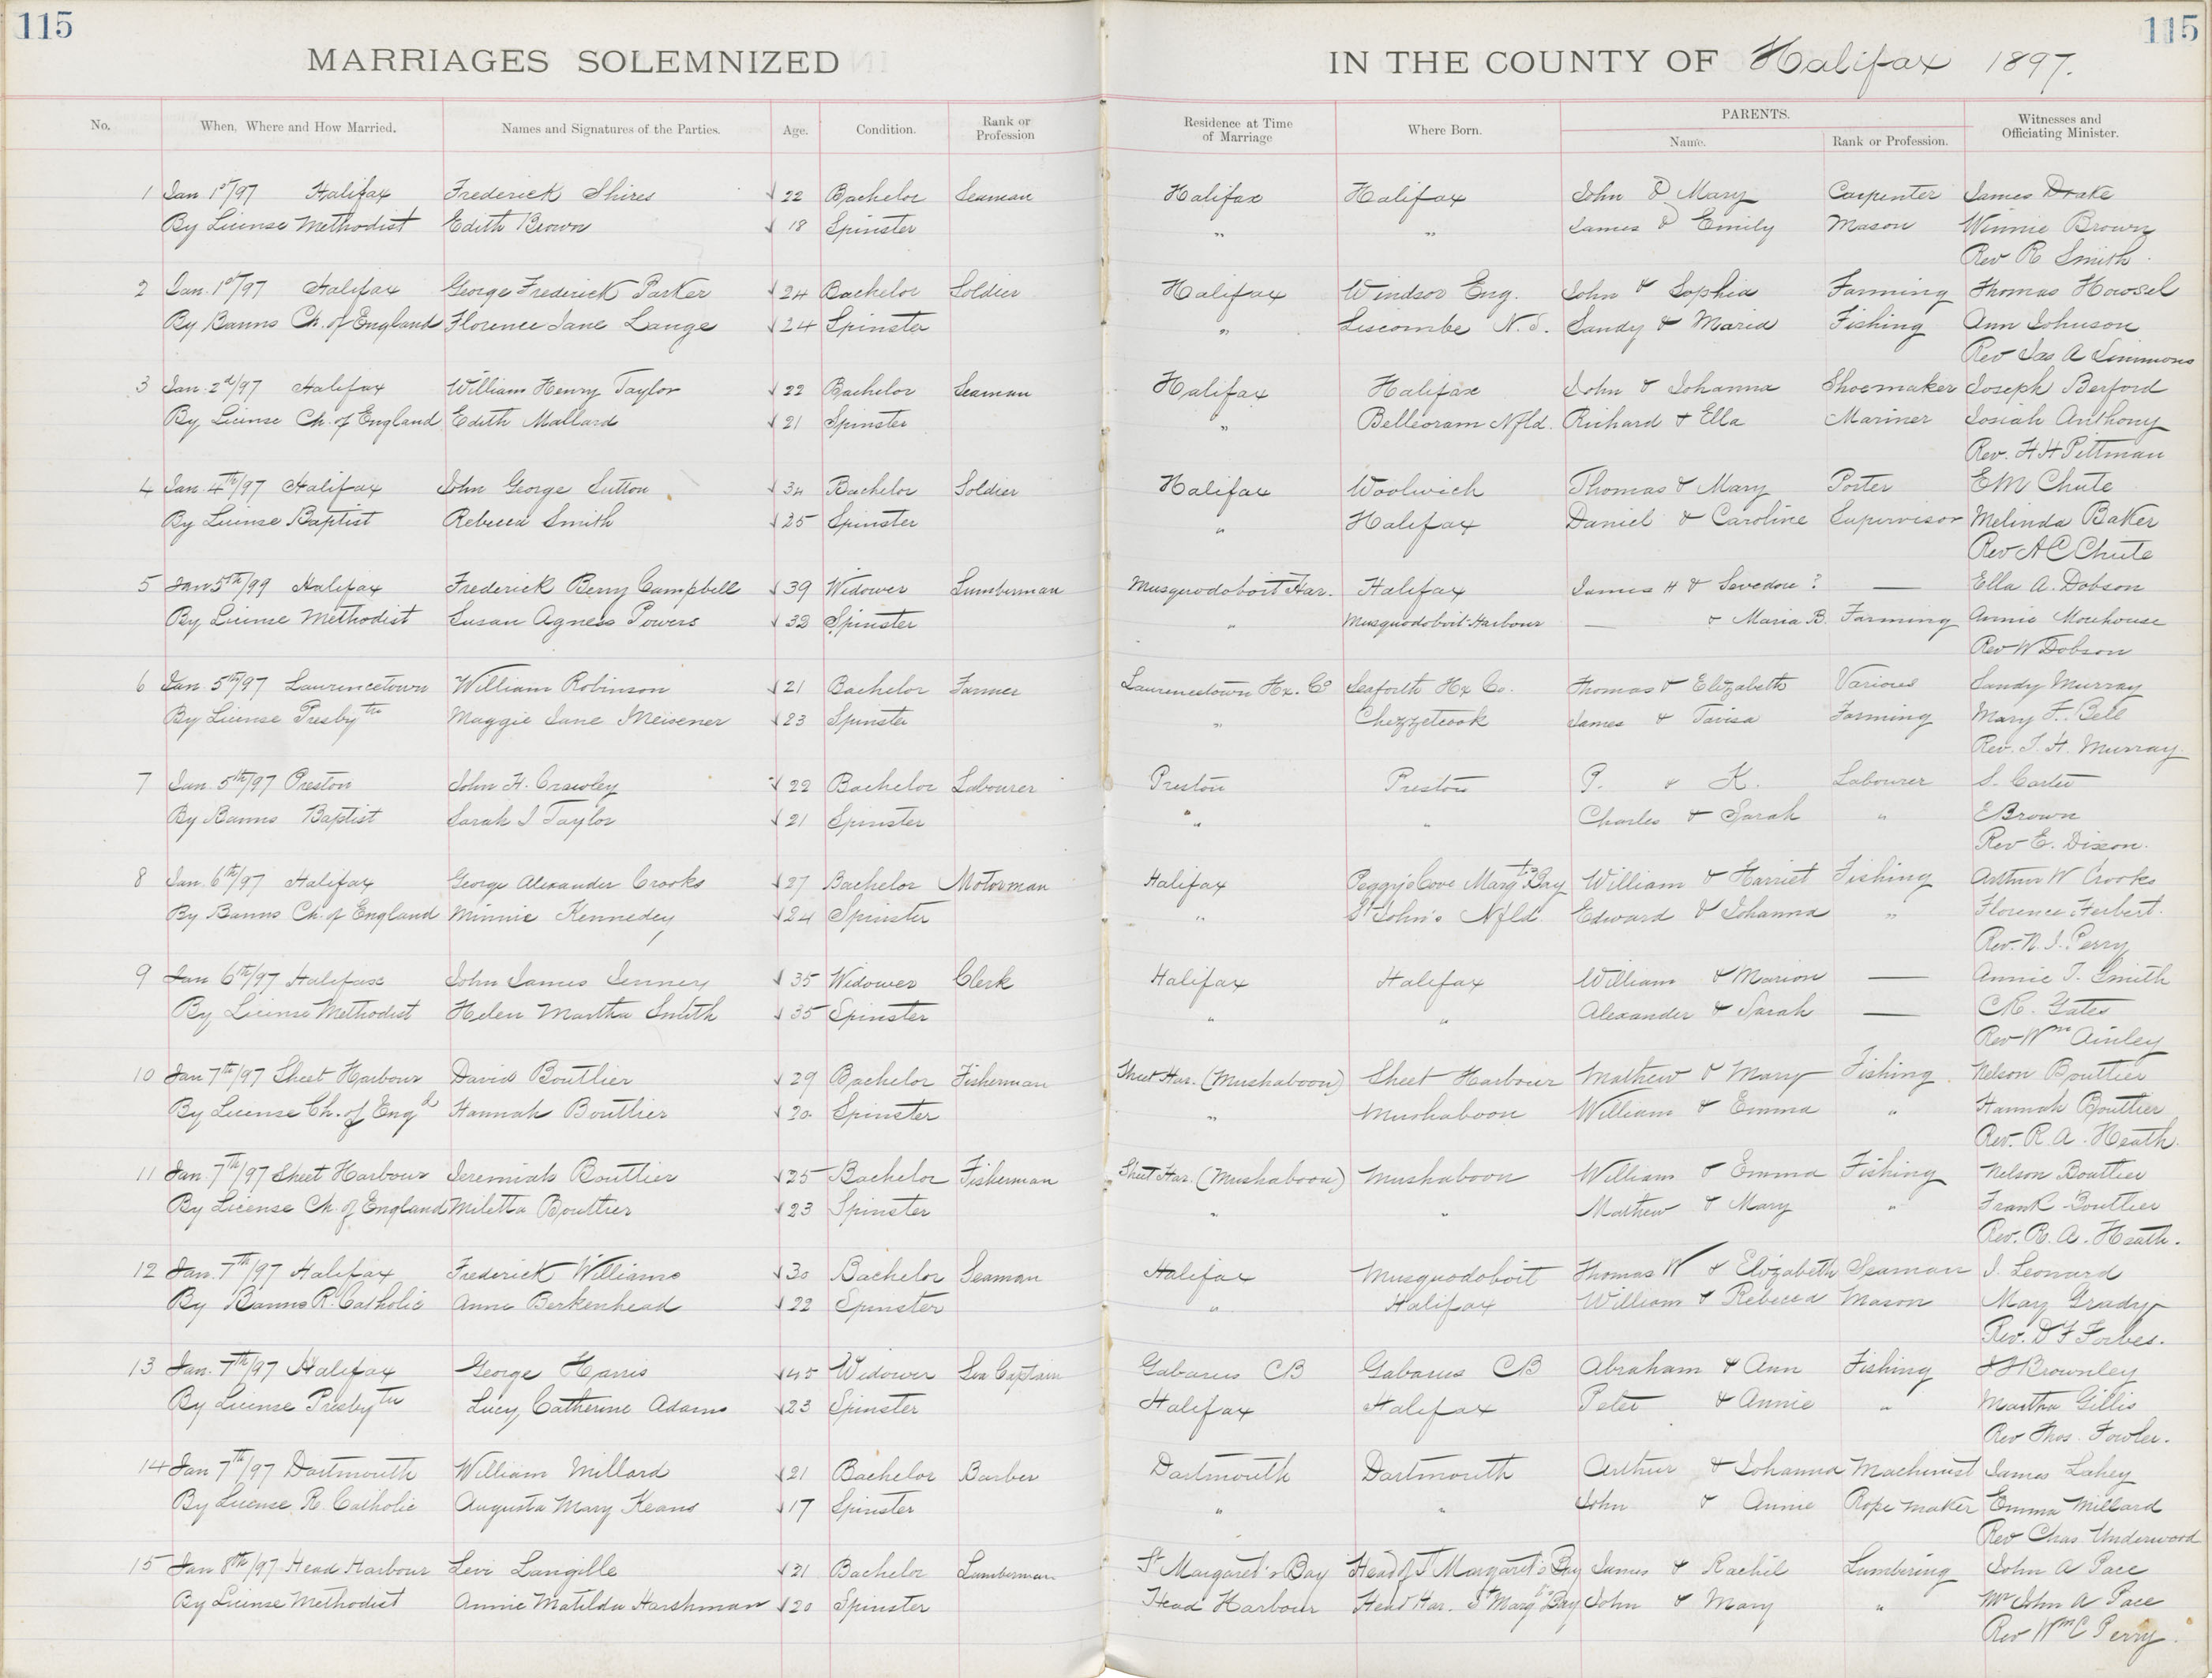 115
115
MARRIAGES SOLEMNIZED IN THE COUNTY OF Halifax 1897.
No. When, Where and How Married. Names and Signatures of the Parties. Age. Condition. Rank or Profession Residence at Time of Marriage Where Born. PARENTS. Name. Rank or Profession. Witnesses and Officiating Minister.
1 Jan 1st/97 Halifax Frederick Shires 22 Bachelor Seaman Halifax Halifax John & Mary Carpenter James Drake
By License Methodist Edith Brown 18 Spinster " " James & Emily Mason Winnie Brown
Rev R Smith.
2 Jan. 1st/97 Halifax George Frederick Parker 24 Bachelor Soldier Halifax Windsor Eng. John & Sophia Farming Thomas Howsel
By Banns Ch. of England Florence Jane Lange 24 Spinster " Liscombe N.S. Sandy & Maria Fishing Ann Johnson
Rev Jas A Simmons
3 Jan. 2d/97 Halifax William Henry Taylor 22 Bachelor Seaman Halifax Halifax John & Johanna Shoemaker Joseph Berford
By License Ch. of England Edith Mallard 21 Spinster " Belleoram Nfld. Richard & Ella Mariner Josiah Anthony
Rev. H H Pittman
4 Jan. 4th/97 Halifax John George Sutton 34 Bachelor Soldier Halifax Woolwich Thomas & Mary Porter E M Chute
By License Baptist Rebecca Smith 25 Spinster " Halifax Daniel & Caroline Supervisor Melinda Baker
Rev A C Chute
5 Jan 5th/99 Halifax Frederick Berry Campbell 39 Widower Lumberman Musquodoboit Har. Halifax James H & ? — Ella A. Dobson
By License Methodist Susan Agness Powers 32 Spinster " Musquodoboit Harbour — & Maria B. Farming Annie Morehouse
Rev W Dobson
6 Jan. 5th/97 Laurencetown William Robinson 21 Bachelor Farmer Laurencetown Hx. Co Seaforth Hx Co. Thomas & Elizabeth Various Sandy Murray
By License Presbytn Maggie Jane Meisener 23 Spinster " Chezzetcook James & Tavisa Farming Mary F. Bell
Rev. J. H. Murray.
7 Jan. 5th/97 Preston John H. Crawley 22 Bachelor Labourer Preston Preston P. & K. Labourer S. Carter
By Banns Baptist Sarah J Taylor 21 Spinster " " Charles & Sarah " E Brown
Rev E. Dixon.
8 Jan. 6th/97 Halifax George Alexander Crooks 27 Bachelor Motorman Halifax Peggy's Cove Margt's Bay William & Harriet Fishing Arthur W Crooks
By Banns Ch. of England Minnie Kennedey 24 Spinster " St John's Nfld. Edward & Johanna " Florence Herbert.
Rev. N. I. Perry
9 Jan 6th/97 Halifax John James Jenney 35 Widower Clerk Halifax Halifax William & Marion — Annie T. Smith
By License Methodist Helen Martha Smith 35 Spinster " " Alexander & Sarah — C R. Gates
Rev Wm Ainley
10 Jan 7th/97 Sheet Harbour David Boutlier 29 Bachelor Fisherman Sheet Har. (Mushaboon) Sheet Harbour Mathew & Mary Fishing Nelson Boutlier
By License Ch. of Engd Hannah Boutlier 20 Spinster " Mushaboon William & Emma " Hannah Boutlier
Rev. R. A. Heath.
11 Jan. 7th/97 Sheet Harbour Jeremiah Boutlier 25 Bachelor Fisherman Sheet Har. (Mushaboon) Mushaboon William & Emma Fishing Nelson Boutlier
By License Ch. of England Miletta Boutlier 23 Spinster " " Mathew & Mary " Frank Boutlier
Rev. R. A. Heath.
12 Jan. 7th/97 Halifax Frederick Williams 30 Bachelor Seaman Halifax Musquodoboit Thomas W & Elizabeth Seaman J. Leonard
By Banns R. Catholic Annie Berkenhead 22 Spinster " Halifax William & Rebecca Mason Mary Grady
Rev. D F Forbes.
13 Jan. 7th/97 Halifax George Harris 45 Widower Sea Captain Gabarus CB Gabarus CB Abraham & Ann Fishing Brownley
By License Presbytn Lucy Catherine Adams 23 Spinster Halifax Halifax Peter & Annie " Martha Gillis
Rev Thos. Fowler.
14 Jan 7th/97 Dartmouth William Millard 21 Bachelor Barber Dartmouth Dartmouth Arthur & Johanna Machinist James Lahey
By License R. Catholic Augusta Mary Keans 17 Spinster " " John & Annie Rope maker Emma Millard
Rev Chas Underwood
15 Jan 8th/97 Head Harbour Levi Langille 21 Bachelor Lumberman St Margaret's Bay Head of St Margaret's Bay James & Rachel Lumbering John A Pace
By License Methodist Annie Matilda Harshman 20 Spinster Head Harbour Head Har. St Margt's Bay John & Mary " Mrs John A Pace
Rev Wm C Perry.